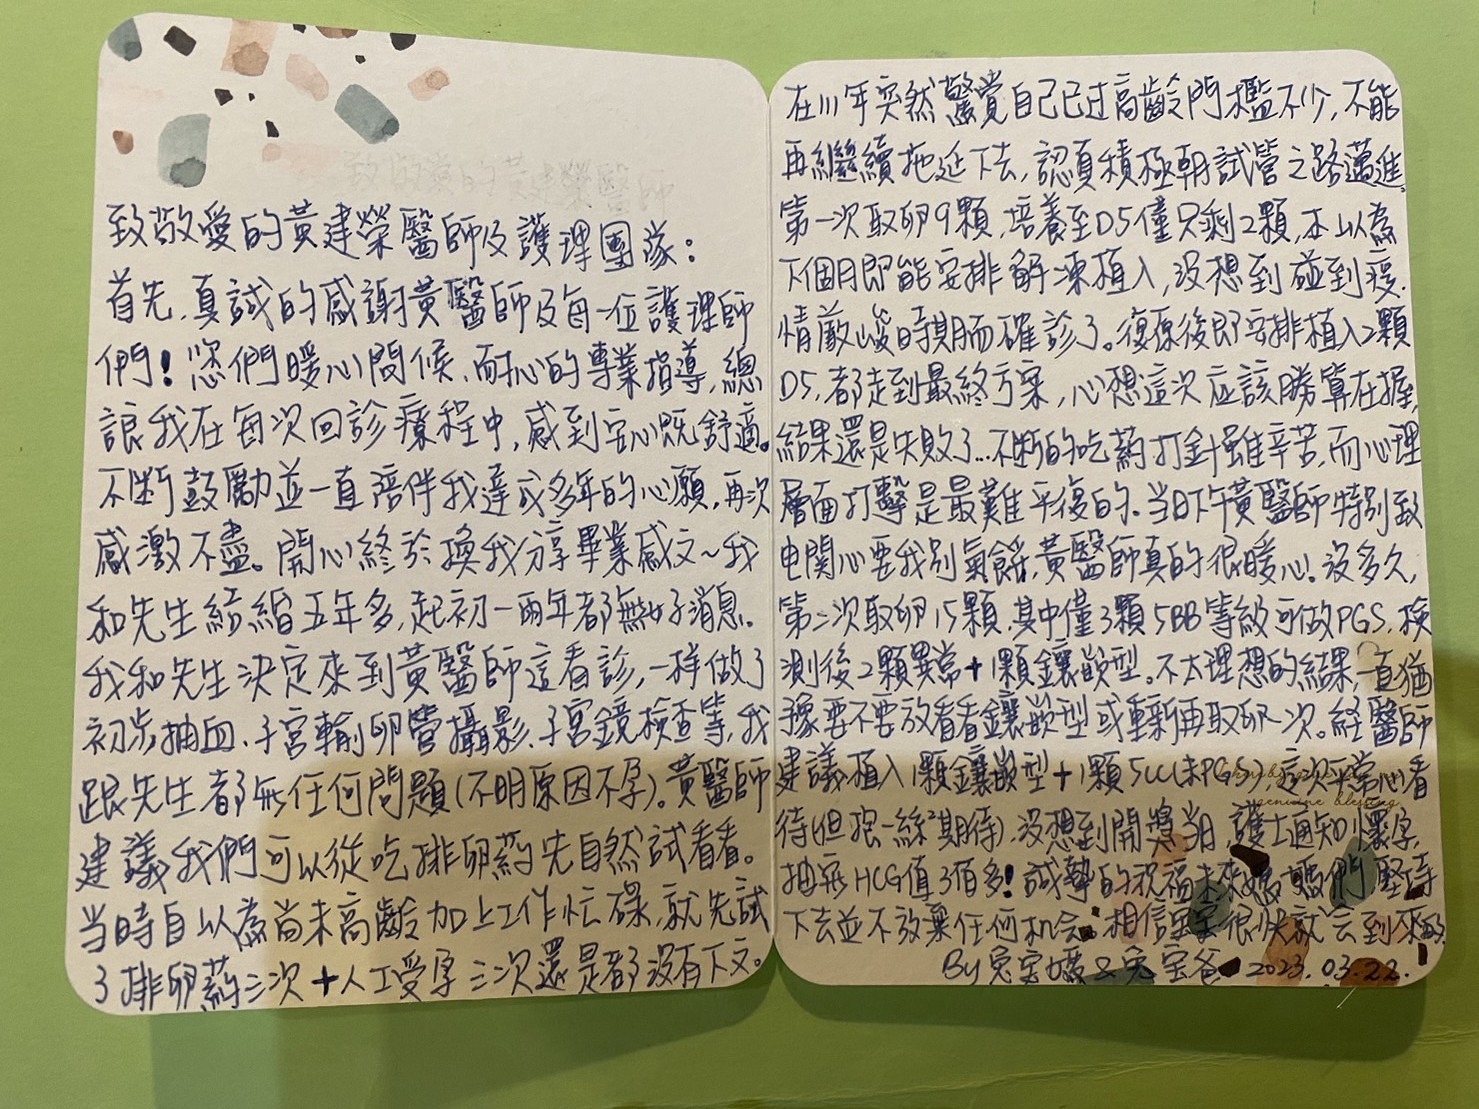 致敬愛的黃建榮醫師
致敬愛的黃建榮醫師及護理團隊:
首先,真誠的感謝黃醫師及每一位護理師
們!您們暖心問候、耐心的專業指導,總
讓我在每次回診療程中,感到安心既舒適。
不斷鼓勵並一直陪伴我達成多年的心願,再次
感激不盡。開心終於換我分享畢業感文~我
和先生結婚五年多,起初一兩年都無好消息。
我和先生決定來到黃醫師這看診,一样做了
初步抽血、子宮輸卵管攝影、子宮鏡檢查等,我
跟先生都無任何問題(不明原因不孕)。黃醫師
建議我們可以從吃排卵药先自然試看看。
当時自以為尚未高齡加上工作忙碌,就先試
了排卵药三次+人工受孕三次還是都没有下文。
在111年突然驚覺自己已过高齡門檻不少,不能
再繼續拖延下去,認真積極朝試管之路邁進。
第一次取卵9顆,培養至D5僅只剩2顆,本以為
下個月即能安排解凍植入,没想到碰到疫
情嚴峻時期而確診了。復原後即安排植入2顆
D5,都走到最終方案,心想這次应該勝算在握,
結果還是失敗了...不斷的吃药打針雖辛苦,而心理
層面打擊是最難平復的。当日下午黃醫師特別致
电関心要我別氣餒,黃醫師真的很暖心!没多久,
第二次取卵15顆,其中僅3顆5BB等級可做PGS,檢
測後2顆異常+1顆鑲嵌型。不太理想的結果,一直猶
豫要不要放看看鑲嵌型或重新再取卵一次。経醫師
建議植入1顆鑲嵌型+1顆5CC(未PGS),這次平常心看
待(但抱一絲²期待)。没想到開獎当日,護士通知懷孕,
genuine blessing
抽血HCG值3佰多!誠摯的祝福未來媽媽們堅持
下去並不放棄任何机会。相信宝宝很快就会到來的。
By 兔宝媽&兔宝爸 2023.03.22.